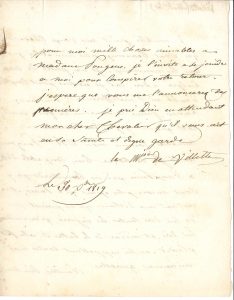 pour moi mille choses aimables a
madame Pougens, je l'invite a se joindre
a moi pour conspirer votre retour.
j'espere que vous me l'annoncerez des
premieres. je prie Dieu en attendant
mon cher Chevalier qu'il vous ait
en sa sainte et digne garde
la Mise de Villette
Ce 30 1819